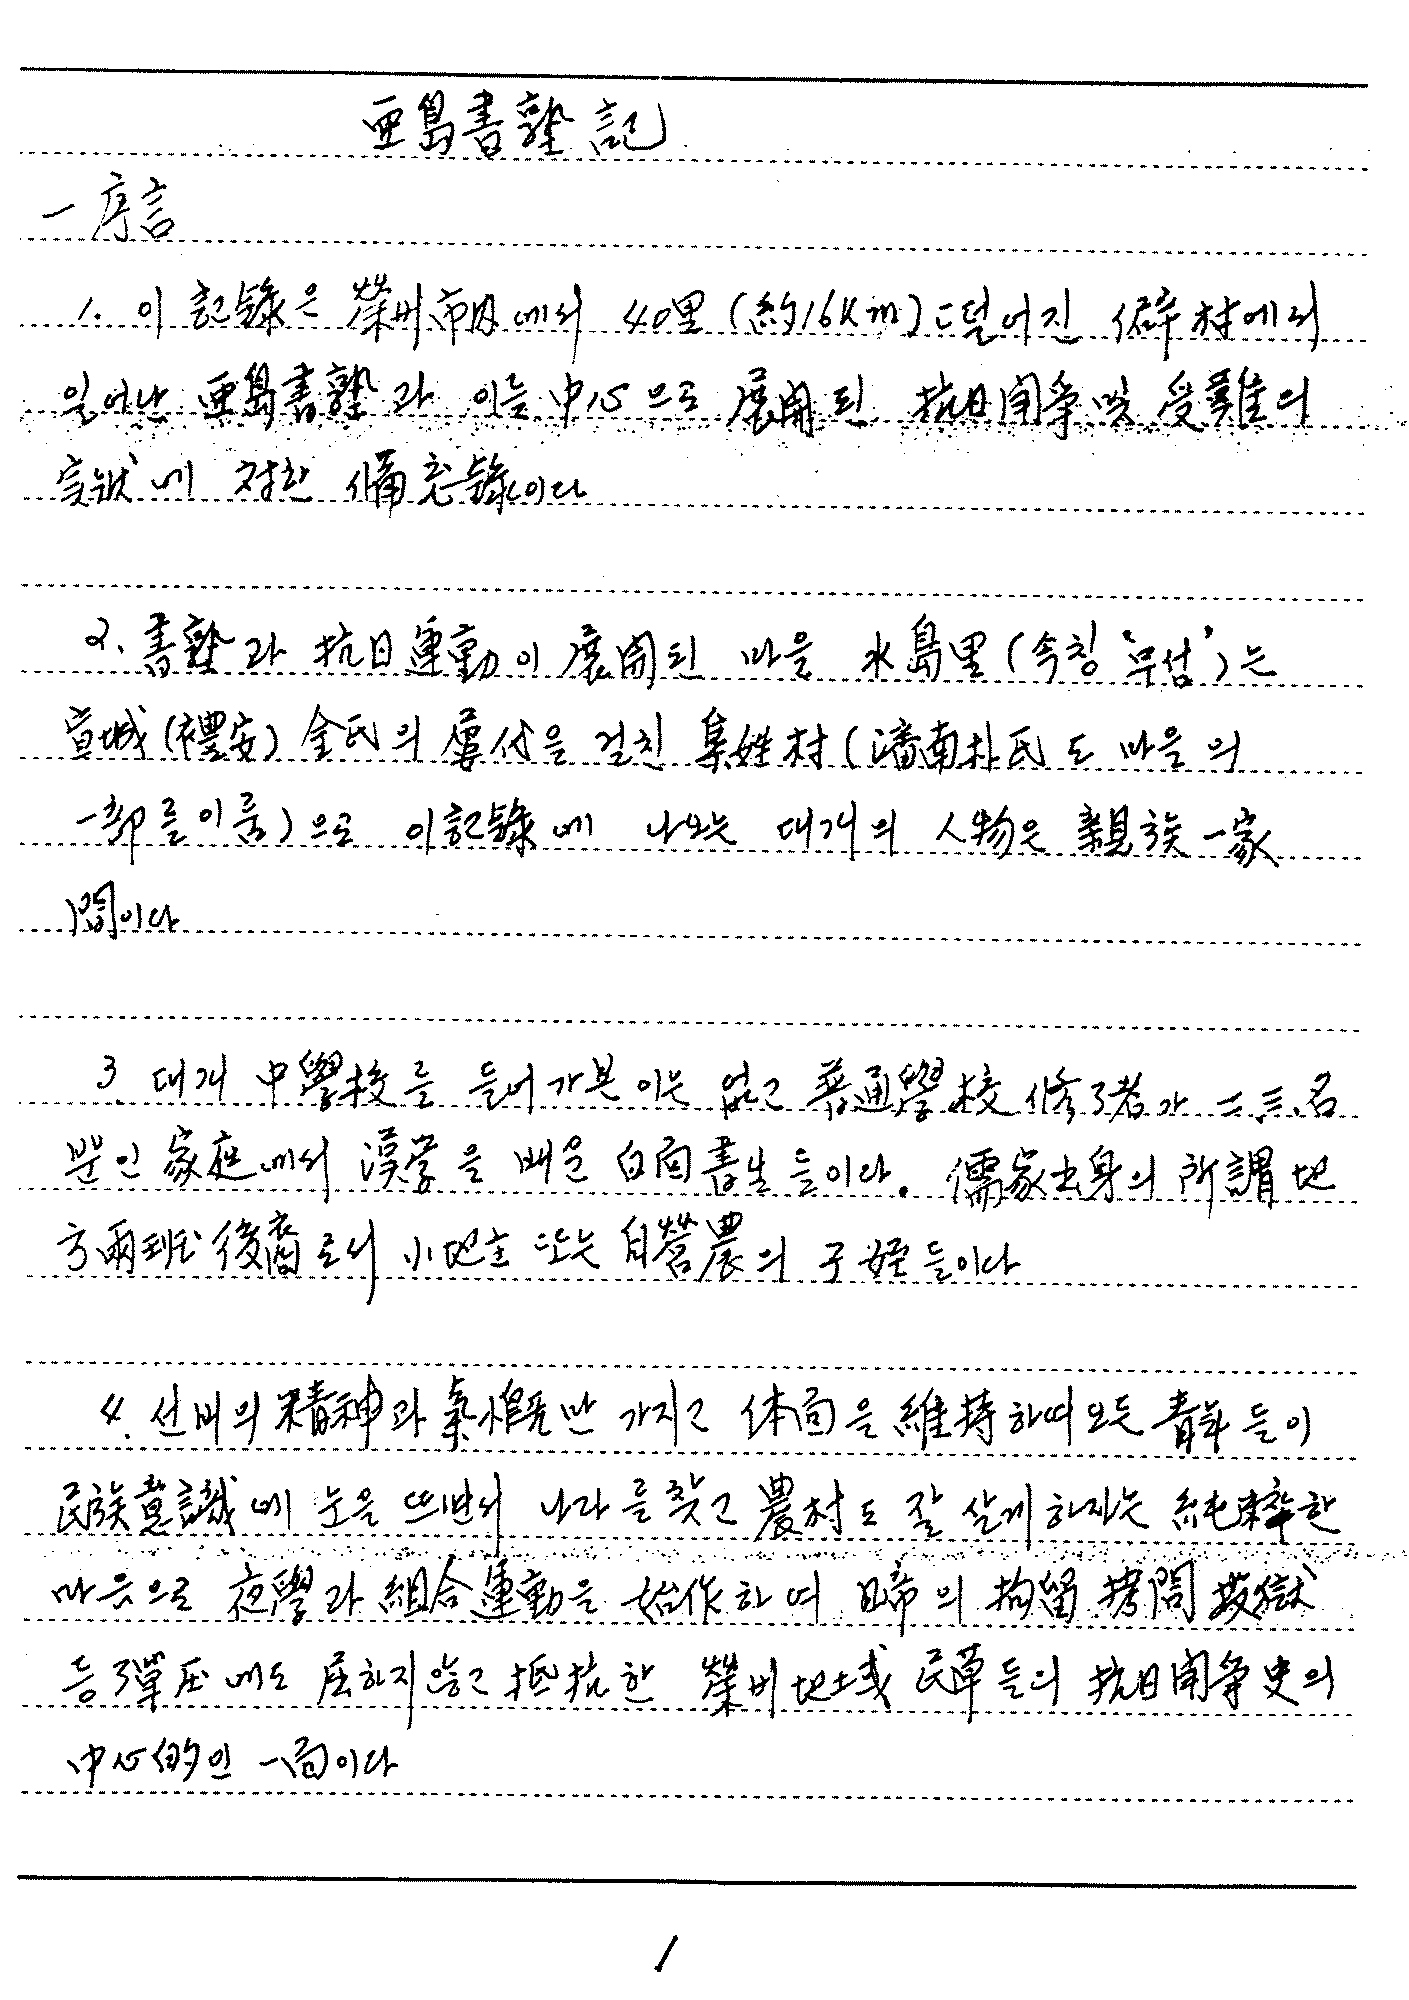 亜島書塾記
一 序言
1. 이 記錄은 榮州市內에서 40里(約16Km) 떨어진 僻村에서
일어난 亜島書塾과 이를 中心으로 展開된 抗日闘争 受難의
実狀에 対한 備忘錄이다
2. 書塾과 抗日運動이 展開된 마을 水島里(속칭 '무섬')는
宣城(禮安) 金氏의 屢代을 걸친 集姓村(潘南朴氏도 마을의
一部를이룸)으로 이記錄에 나오는 대개의 人物은 親族 一家
間이다
3. 대개 中學校를 들어가본 이는 없고 普通學校 修了者가 二三名
뿐인 家庭에서 漢学을 배운 白面書生들이다. 儒家出身의 所謂 地
方兩班 後裔로서 小地主 또는 自營農의 子姪들이다
4. 선비의 精神과 氣慨만 가지고 体面을 維持하며오든 靑年들이
民族意識에 눈을 뜨면서 나라를찾고 農村도 잘 살게하자는 純粹한
마음으로 夜學과 組合運動을 始作하여 日帝의 拘留 拷問 投獄
등 彈压에도 屈하지않고 抵抗한 榮州地域 民草들의 抗日闘争史의
中心的인 一面이다
1